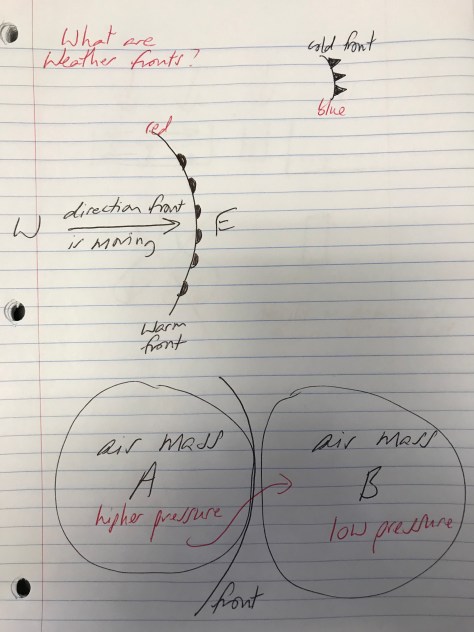 What are
Weather fronts?
cold front
blue
red
W
direction front
is moving
E
Warm
front
air mass
A
higher pressure
air mass
B
low pressure
front